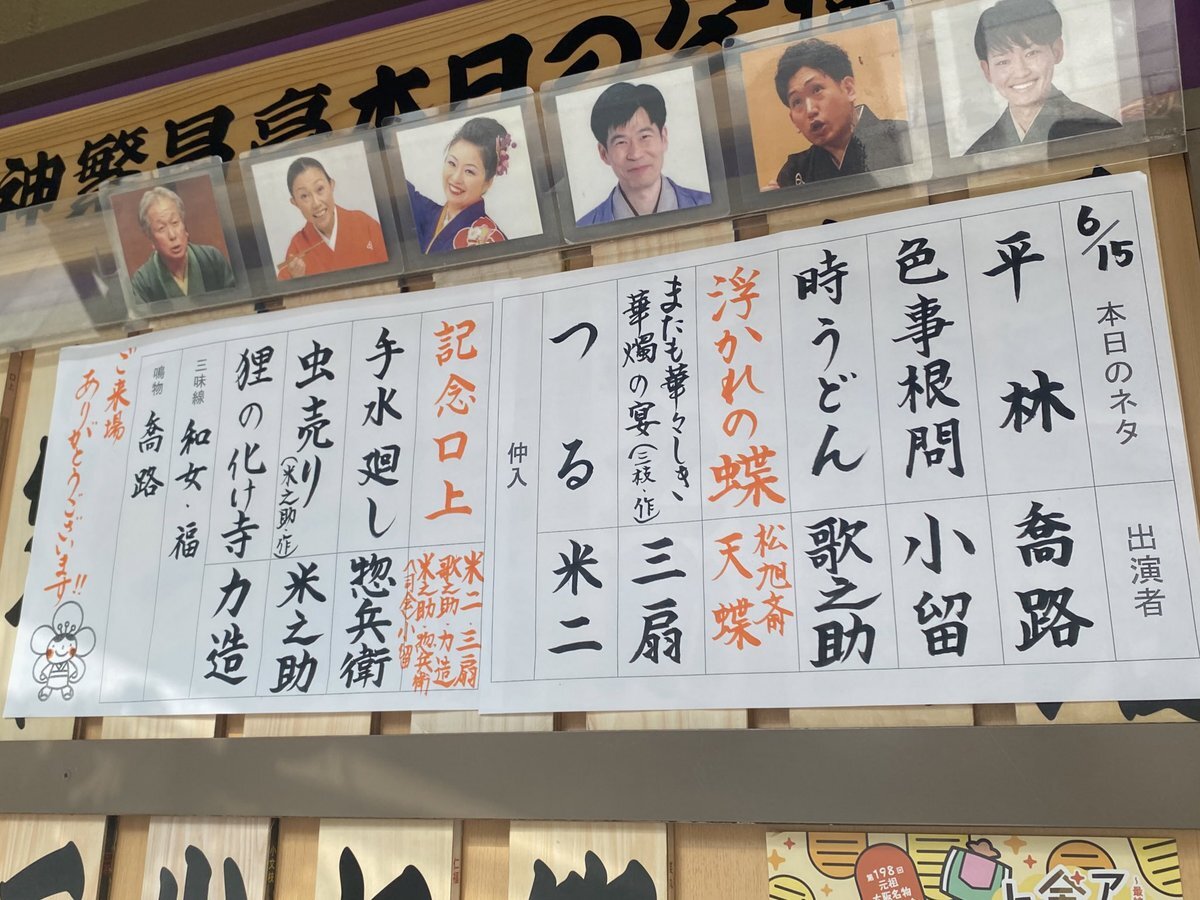 神繁昌亭本日の
6/15
本日のネタ
出演者
平林
喬路
色事根問
小留
時うどん
歌之助
浮かれの蝶
松旭斎
天蝶
またも華々しき、
華燭の宴(三枝・作)
三扇
つる
米二
仲入
記念口上
米二・三扇
歌之助・力造
米之助・惣兵衛
(司会)小留
手水廻し
惣兵衛
虫売り(米之助・作)
米之助
狸の化け寺
力造
三味線
和女・福
鳴物
喬路
ご来場
ありがとうございます!!
第198回
元祖
大阪名物